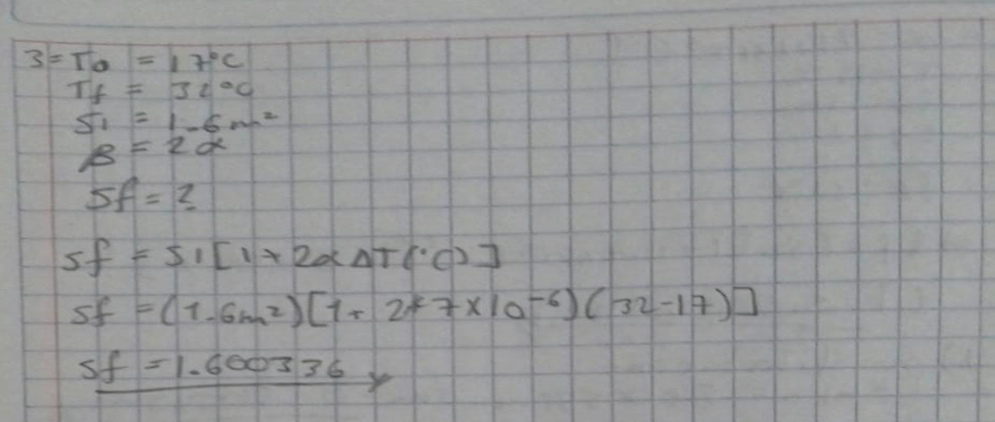 3= To = 17°C
Tf = 32°C
Si = 1.6 m²
β = 2α
Sf = ?
Sf = Si [1 + 2α ΔT(°C)]
Sf = (1.6m²)[1 + 2*7×10⁻⁶)(32-17)]
Sf = 1.600336